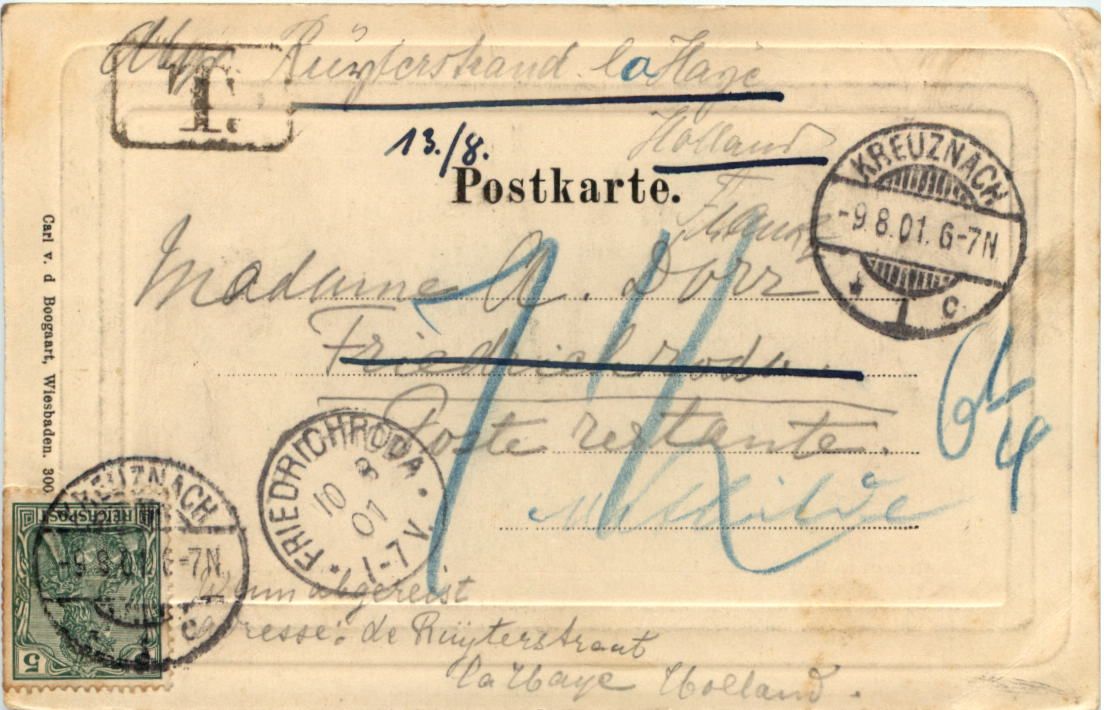 Ruÿterstraat la Haye
T.
Holland
13./8.
Postkarte.
Madame A. Dorr
Friedrichroda
Poste restante.
KREUZNACH
-9.8.01. 6-7N.
* 1 c.
FRIEDRICHRODA
10 8 01
* 1-7 V.
Carl v. d Boogaart, Wiesbaden. 300.
REICHSPOST
5
KREUZNACH
-9.8.01. 6-7N.
c.
Wenn abgereist
adresse: de Ruÿterstraat
la Haye Holland.